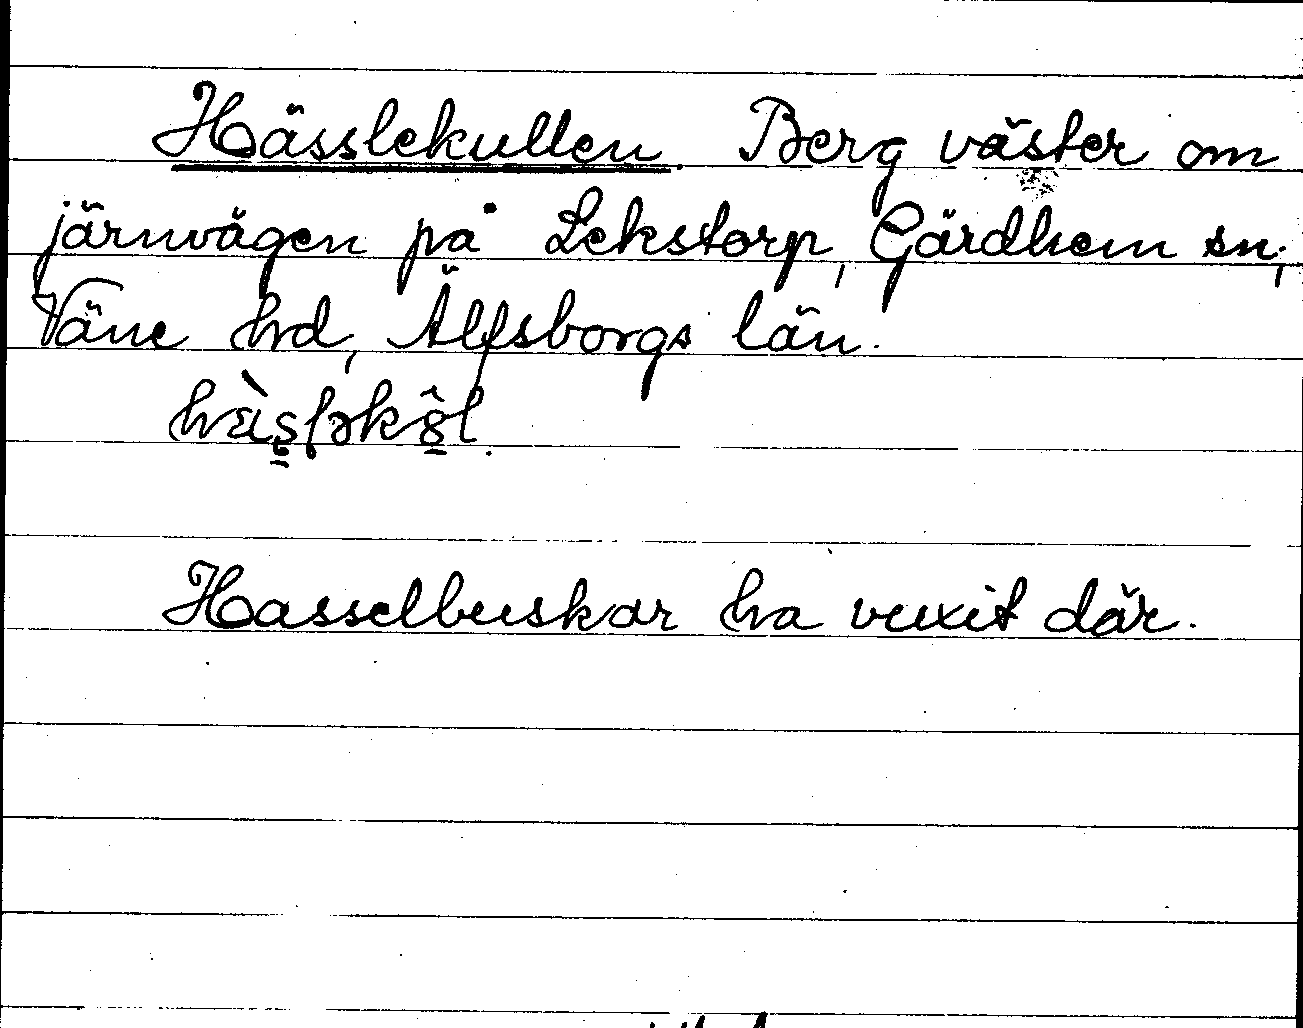 Hässlekullen. Berg väster om
järnvägen på Lekstorp, Gärdhem sn;
Väne hd, Älfsborgs län.
Hasselbuskar ha vuxit där.